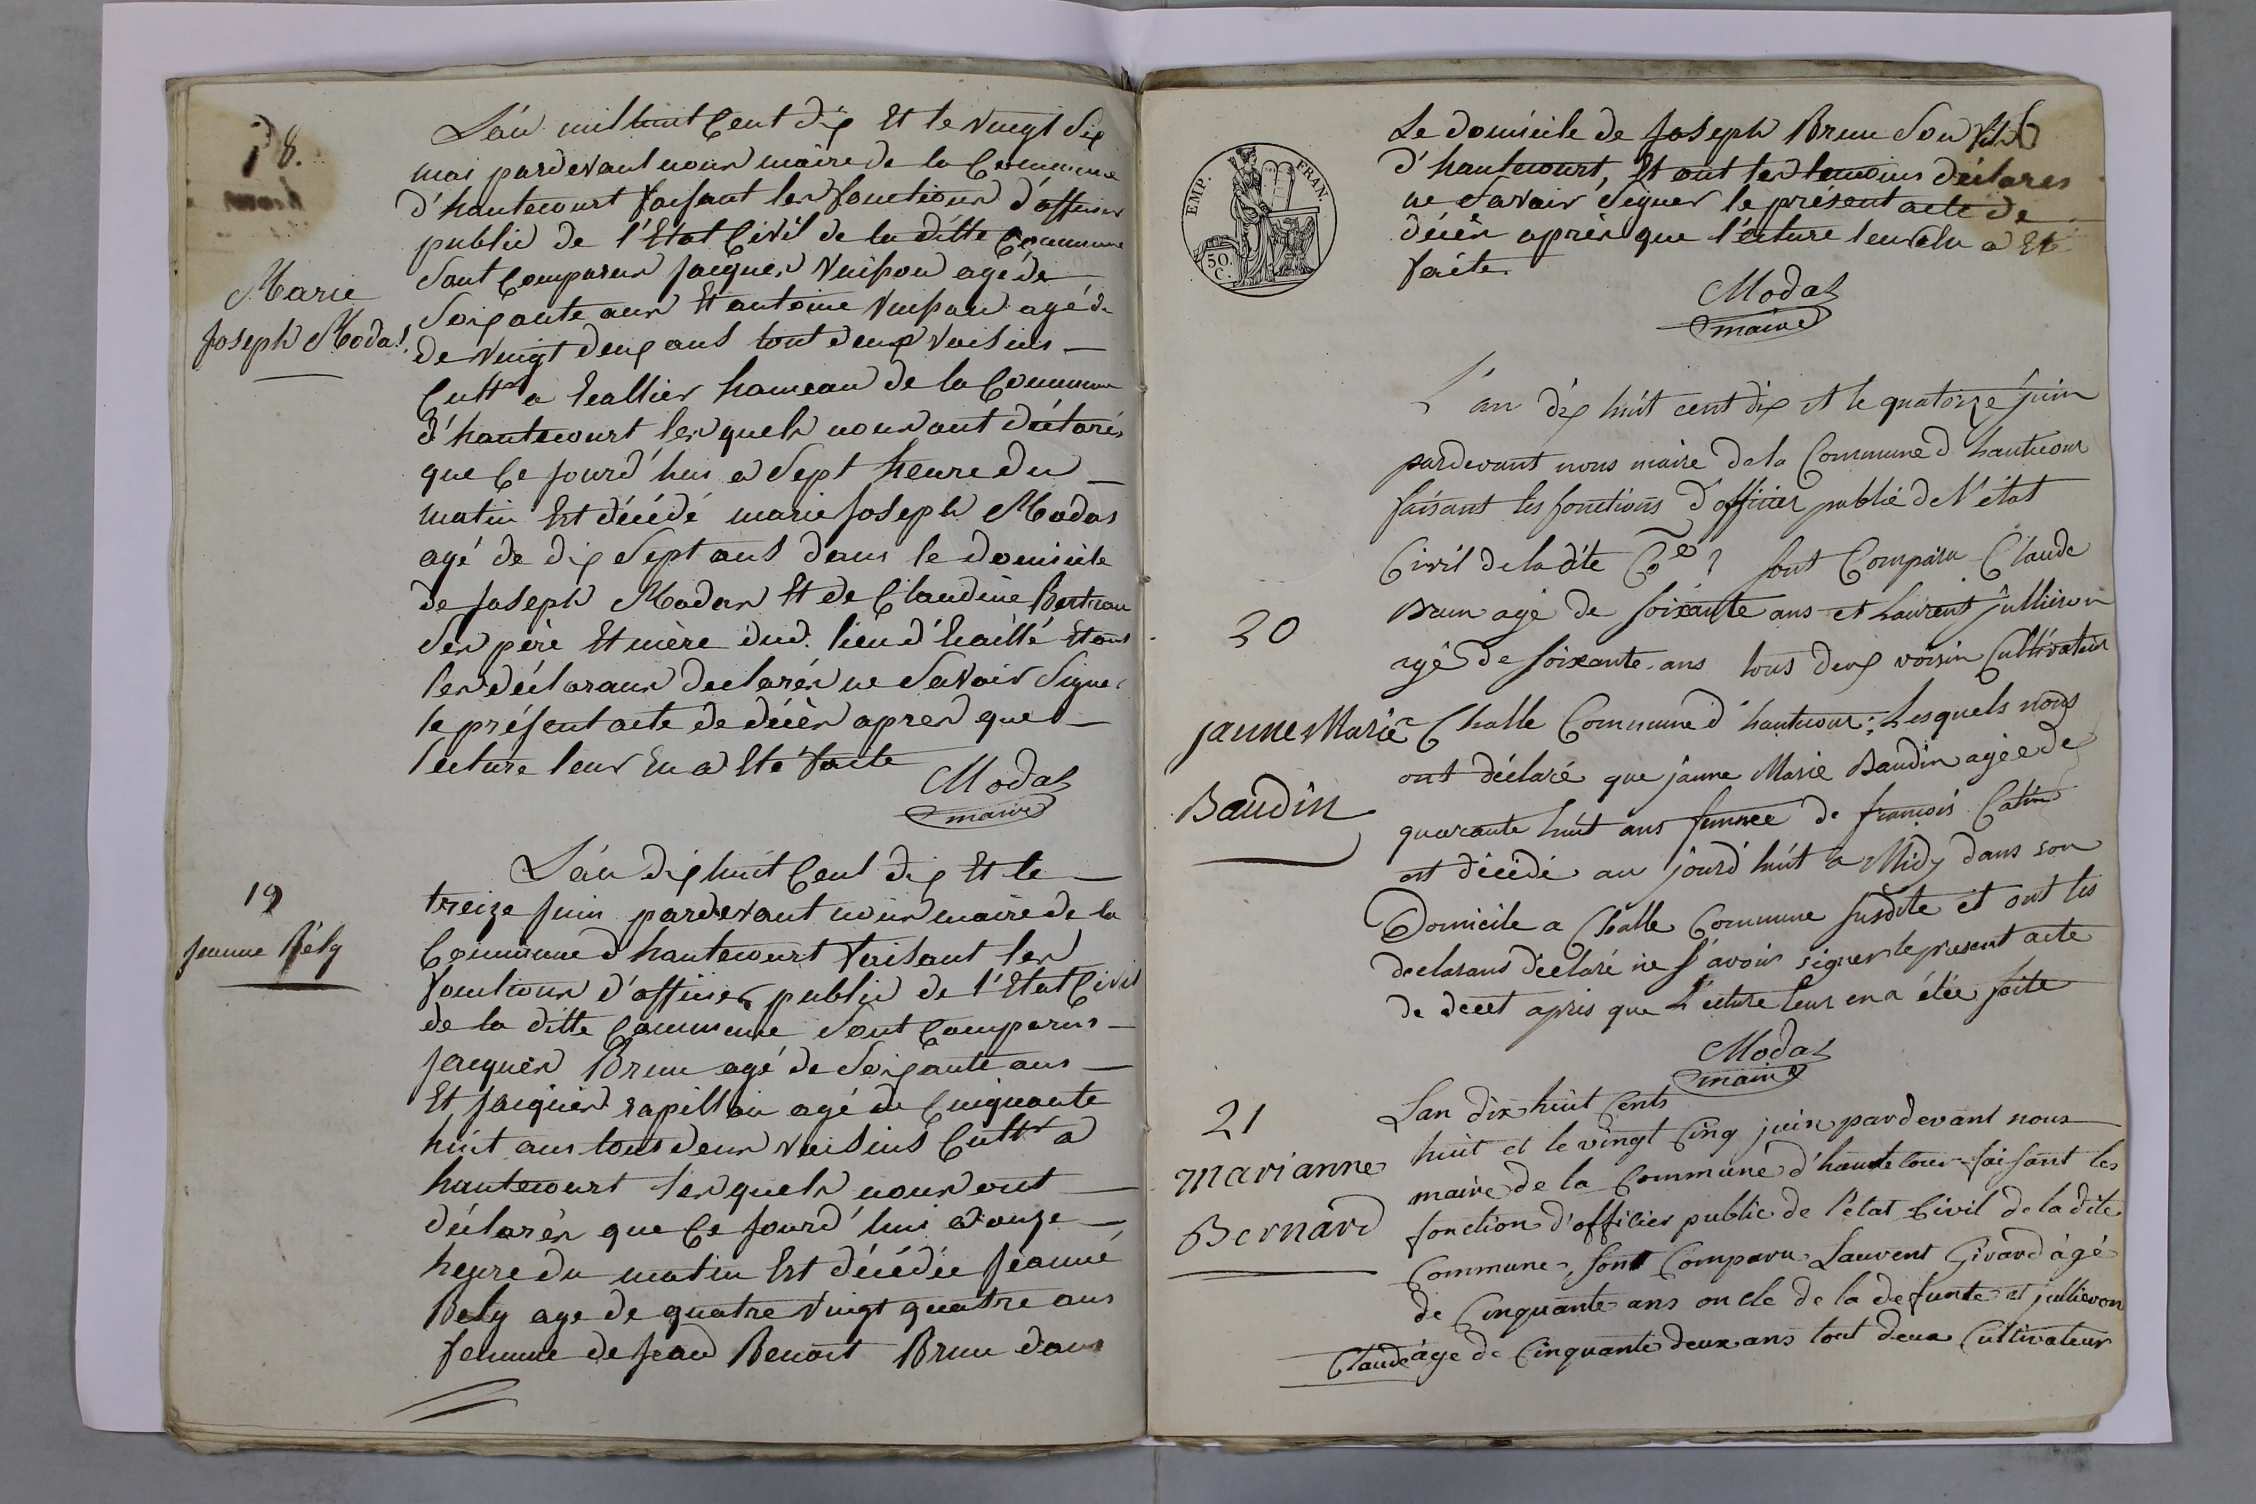 18.
Marie
Joseph Modas
L'an mil huit Cent dix Et le vingt six
mai pardevant nous maire de la Commune
d'hautecourt faisant les fonctions d'officier
public de l'Etat Civil de la ditte Commune
sont Comparus Jacques Vuison agé de
soixante ans Et antoine Vuison agé de
de vingt deux ans tout deux voisins
Cultr a
hameau de la Commune
d'hautecourt lesquels nous ont déclarés
que Ce jourd'hui a Sept heure du
matin Est décédé marie Joseph Modas
agé de dix Sept ans dans le domicile
de Joseph Modas Et de Claudine
ses père Et mère dud. lieu d' Et ont
les déclarans declarés ne Savoir Signer
le présent acte de décès apres que
lecture leur En a Eté faite
Modas
maire
19
Jeanne Bély
L'an dix huit Cent dix Et le
treize Juin pardevant nous maire de la
Commune d'hautecourt faisant les
fonctions d'officier public de l'Etat Civil
de la ditte Commune Sont Comparus
Jacques Brun agé de Soixante ans
Et Jacques rapillon agé de Cinquante
huit ans tous deux voisins Cultr a
hautecourt lesquels nous ont
déclarés que Ce jourd'hui a onze
heure du matin Est décédée Jeanne
Bely age de quatre vingt quatre ans
femme de Jean Benoit Brun dans
EMP. FRAN.
50.
C.
Le domicile de Joseph Brun Son fils
d'hautecourt, Et ont les temoins déclares
ne Savoir Signer le présent acte de
décès après que lecture leur En a Eté
faite.
Modas
maire
20
jaune Marie
Baudin
L'an dix huit cent dix et le quatorze juin
pardevant nous maire de la Commune d'hautecour
faisant les fonctions d'officier public de l'état
Civil de la dite Coe sont Comparu Claude
Brun agé de soixante ans et Laurent jullieron
agé de soixante ans tous deux voisin Cultivateur
Challe Commune d'hautecour; Lesquels nous
ont déclaré que jaune Marie Baudin agée de
quarante huit ans femme de francois Catin
est décédé au jourd'huit a Midy dans son
Domicile a Challe Commune susdite et ont les
declarans déclaré ne s'avoir signer le present acte
de decet apris que L'ecture leur en a étée faite
Modas
maire
21
marianne
Bernard
Lan dix huit Cents
huit et le vingt Cinq juin pardevant nous
maire de la Commune d'hautecour faisant les
fonction d'officier public de l'état Civil de la dite
Commune, sont Comparu Laurent Girard âgé
de Cinquante ans oncle de la defunte et jullieron
Claude âge de Cinquante deux ans tout deux Cultivateur